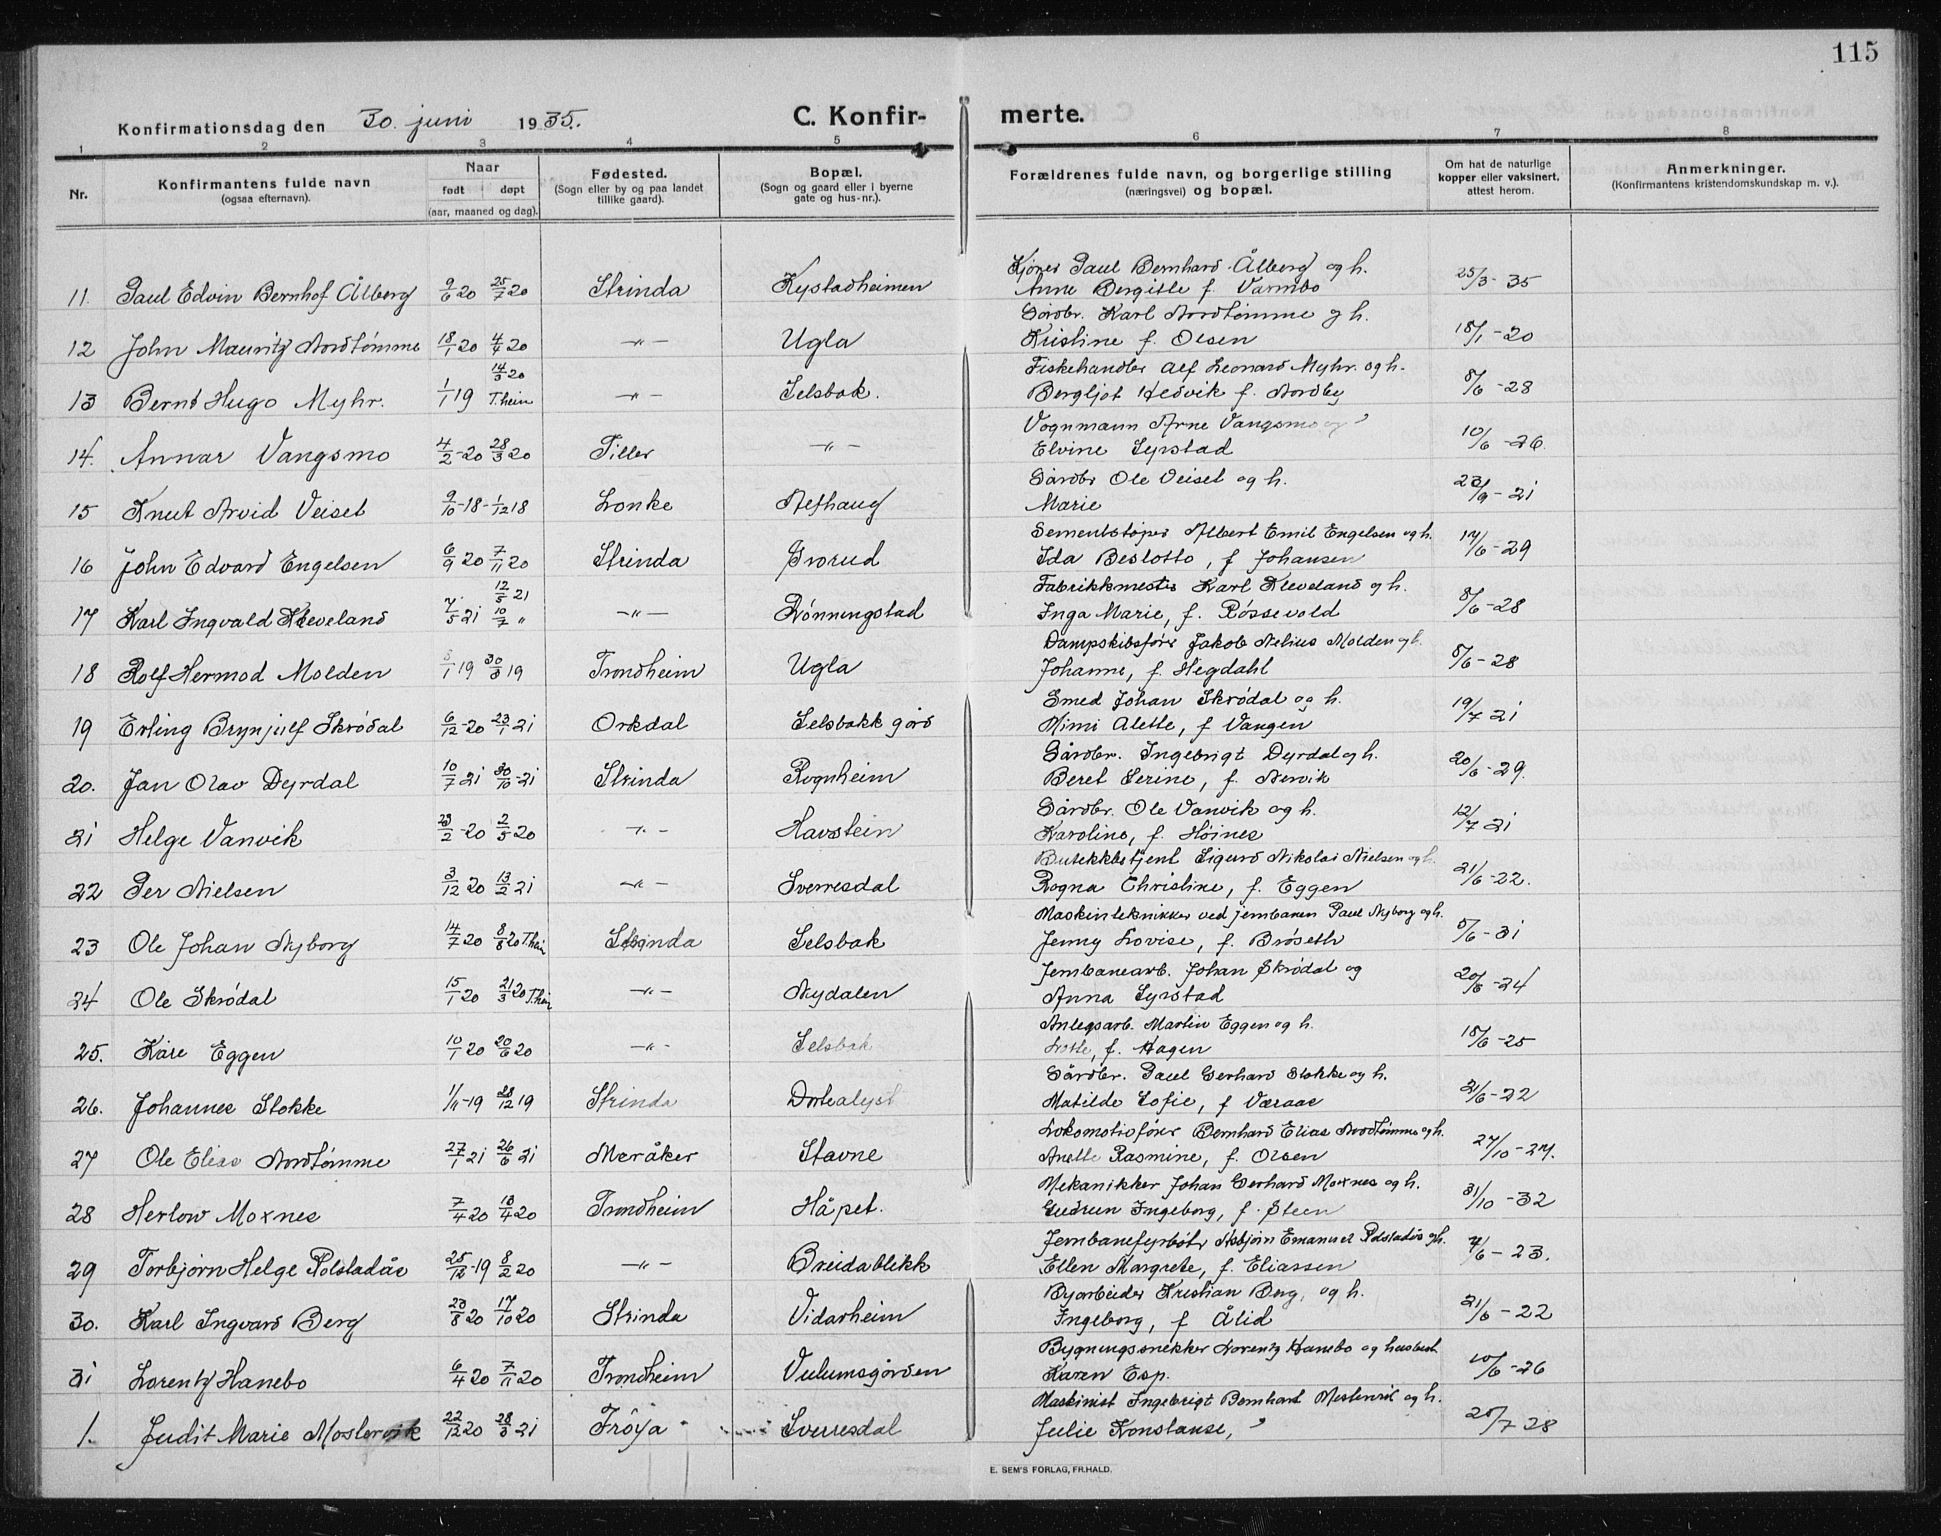 115
Konfirmationsdag den 30. juni 1935.
C. Konfirmerte.
1 2 3 4 5 6 7 8
Nr. Konfirmantens fulde navn (ogsaa efternavn). Naar født døpt (aar, maaned og dag). Fødested. (Sogn eller by og paa landet tillike gaard). Bopæl. (Sogn og gaard eller i byerne gate og hus-nr.). Forældrenes fulde navn, og borgerlige stilling (næringsvei) og bopæl. Om hat de naturlige kopper eller vaksinert, attest herom. Anmerkninger. (Konfirmantens kristendomskundskap m. v.).
11. Paul Edvin Bernhof Ålberg 9/6 20 25/7 20 Strinda Kystadheimen Kjører Paul Bernhard Ålberg og h. 25/3-35
Anne Bergitte f. Varmbo
12 John Mauritz Nordtømme 18/1 20 4/4 20 -"- Ugla Gårdbr. Karl Nordtømme og h. 18/1-20
Kristine f. Olsen
13 Bernt Hugo Myhr. 1/1 19 14/3 20 T.heim -"- Selsbak. Fiskehandler Alf Leonard Myhr. og h. 8/6-28
Bergljot Hedvik f. Nordby
14. Annar Vangsmo 4/2-20 28/3 20 Tiller -"- Vognmann Arne Vangsmo og 10/6-26.
Elvine Syrstad
15 Knut Arvid Veiset 9/10-18- 1/12 18 Lonke Gårdbr Ole Veiset og h. 23/9-21
Marie
16 John Edvard Engelsen 6/9 20 7/11 20 Strinda Sementstøper Albert Emil Engelsen og h. 14/6-29
Ida Beslotto, f Johansen
17 Karl Ingvald Kleveland 7/5 21 12/5 21 10/7 " -"- Rønningstad Fabrikkmester Karl Kleveland og h. 8/6-28
Inga Marie, f. Røssevold
18 Rolf Hermod Molden 5/1 19 30/3 19 Trondheim Ugla Dampskibsfører Jakob Nelius Molden og h. 8/6-28
Johanne, f. Hegdahl
19 Erling Brynjulf Skrødal 6/12-20 23/1 21 Orkdal Selsbakk gård Smed Johan Skrødal og h. 19/7 21
Mimi Alette, f Vangen
20. Jan Olav Dyrdal 10/7 21 30/10-21 Strinda Rognheim Gårdbr. Ingebrigt Dyrdal og h. 20/6-29.
Beret Serine, f. Nervik
21 Helge Vanvik 23/2-20 2/5 20 -"- Havstein Gårdbr. Ole Vanvik og h. 12/7 21
Karoline, f. Høines
22 Per Nielsen 3/12 20 13/2 21 -"- Sverresdal Butekkbetjent Sigurd Nikolai Nielsen og h. 21/6-22.
Rogna Christine, f. Eggen
23 Ole Johan Nyborg 14/7 20 8/8 20 T.heim Strinda Selsbak Maskinteknikker ved jernbanen Paul Nyborg og h. 5/6-31
Jenny Lovise, f. Brøseth
24 Ole Skrødal 15/1 20 21/3 20 T.heim -"- Nydalen Jernbanearb. Johan Skrødal og 20/6-24
Anna Syrstad
25. Kåre Eggen 10/1 20 20/6 20 -"- Selsbak Anlegsarb. Martin Eggen og h. 18/6-25
Lotte, f. Hagen
26. Johannes Stokke 1/11-19 28/12 19 Strinda Dortealyst Gårdbr. Paul Gerhard Stokke og h. 21/6-22
Matilde Sofie, f Væraas
27 Ole Elias Nordtømme 27/1 21 26/6 21 Meråker Stavne Lokomotivfører Bernhard Elias Nordtømme og h. 27/10-27.
Anette Rasmine, f. Olsen
28 Herlow Moxnes 7/4 20 18/4 20 Trondheim Håpet. Mekanikker Johan Gerhard Moxnes og h. 31/10-32
Gudrun Ingeborg, f. Steen
29 Torbjørn Helge Rolstadås 25/12-19 8/2 20 -"- Breidablikk Jernbanefyrbøter Asbjørn Emanuel Rolstadås og h. 4/6-23.
Ellen Margrete, f. Eliassen
30. Karl Ingvard Berg 23/8 20 17/10 20 Strinda Vidarheim Byarbeider Kristian Berg, og h. 21/6-22
Ingeborg, f Ålid
31 Lorentz Hanebo 6/4 20 7/11 20 Trondheim Vulumsgården Bygningssnekker Lorentz Hanebo og hustru 10/6-26
Karen Esp.
1. Judit Marie 22/12 20 28/3 21 Frøya Sverresdal Maskinist Ingebrigt Bernhard og h. 25/7 28
Julie Konstanse,
E. SEM'S FORLAG, FR.HALD.